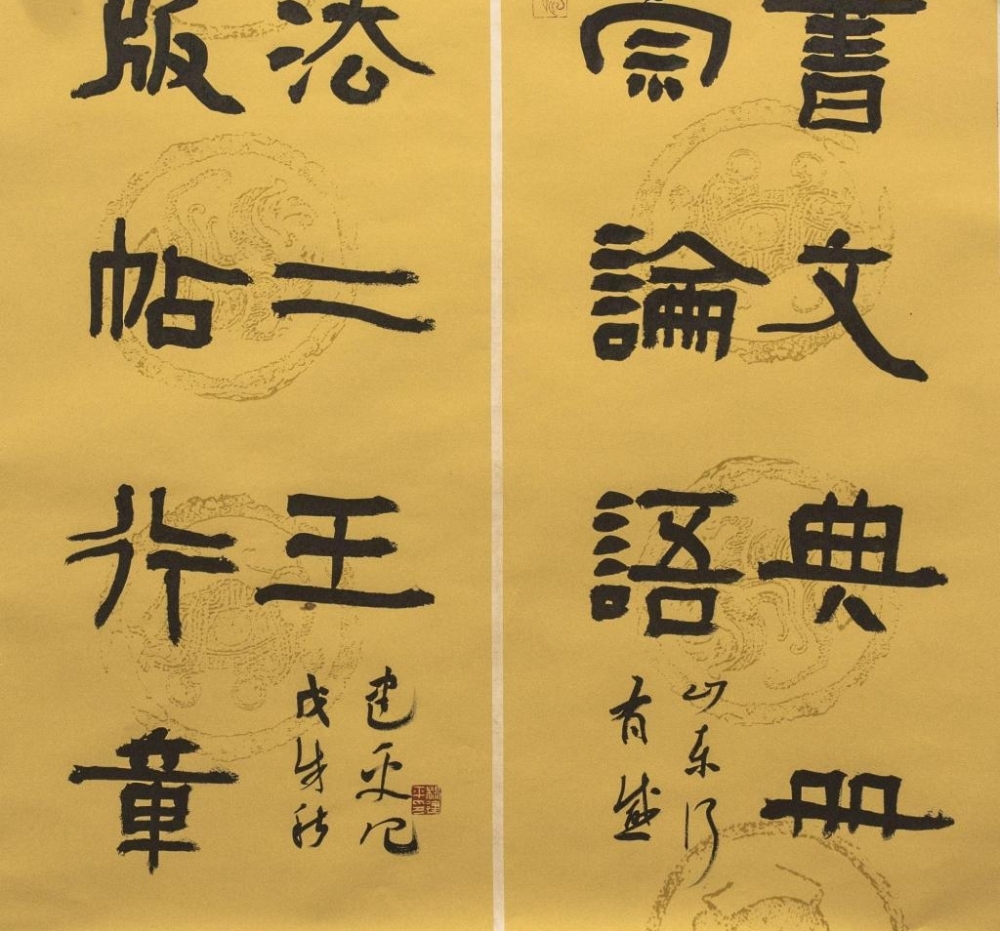 書文典冊
宗論語
山东行
有感
法二王
建平
戊戌秋
版帖行章